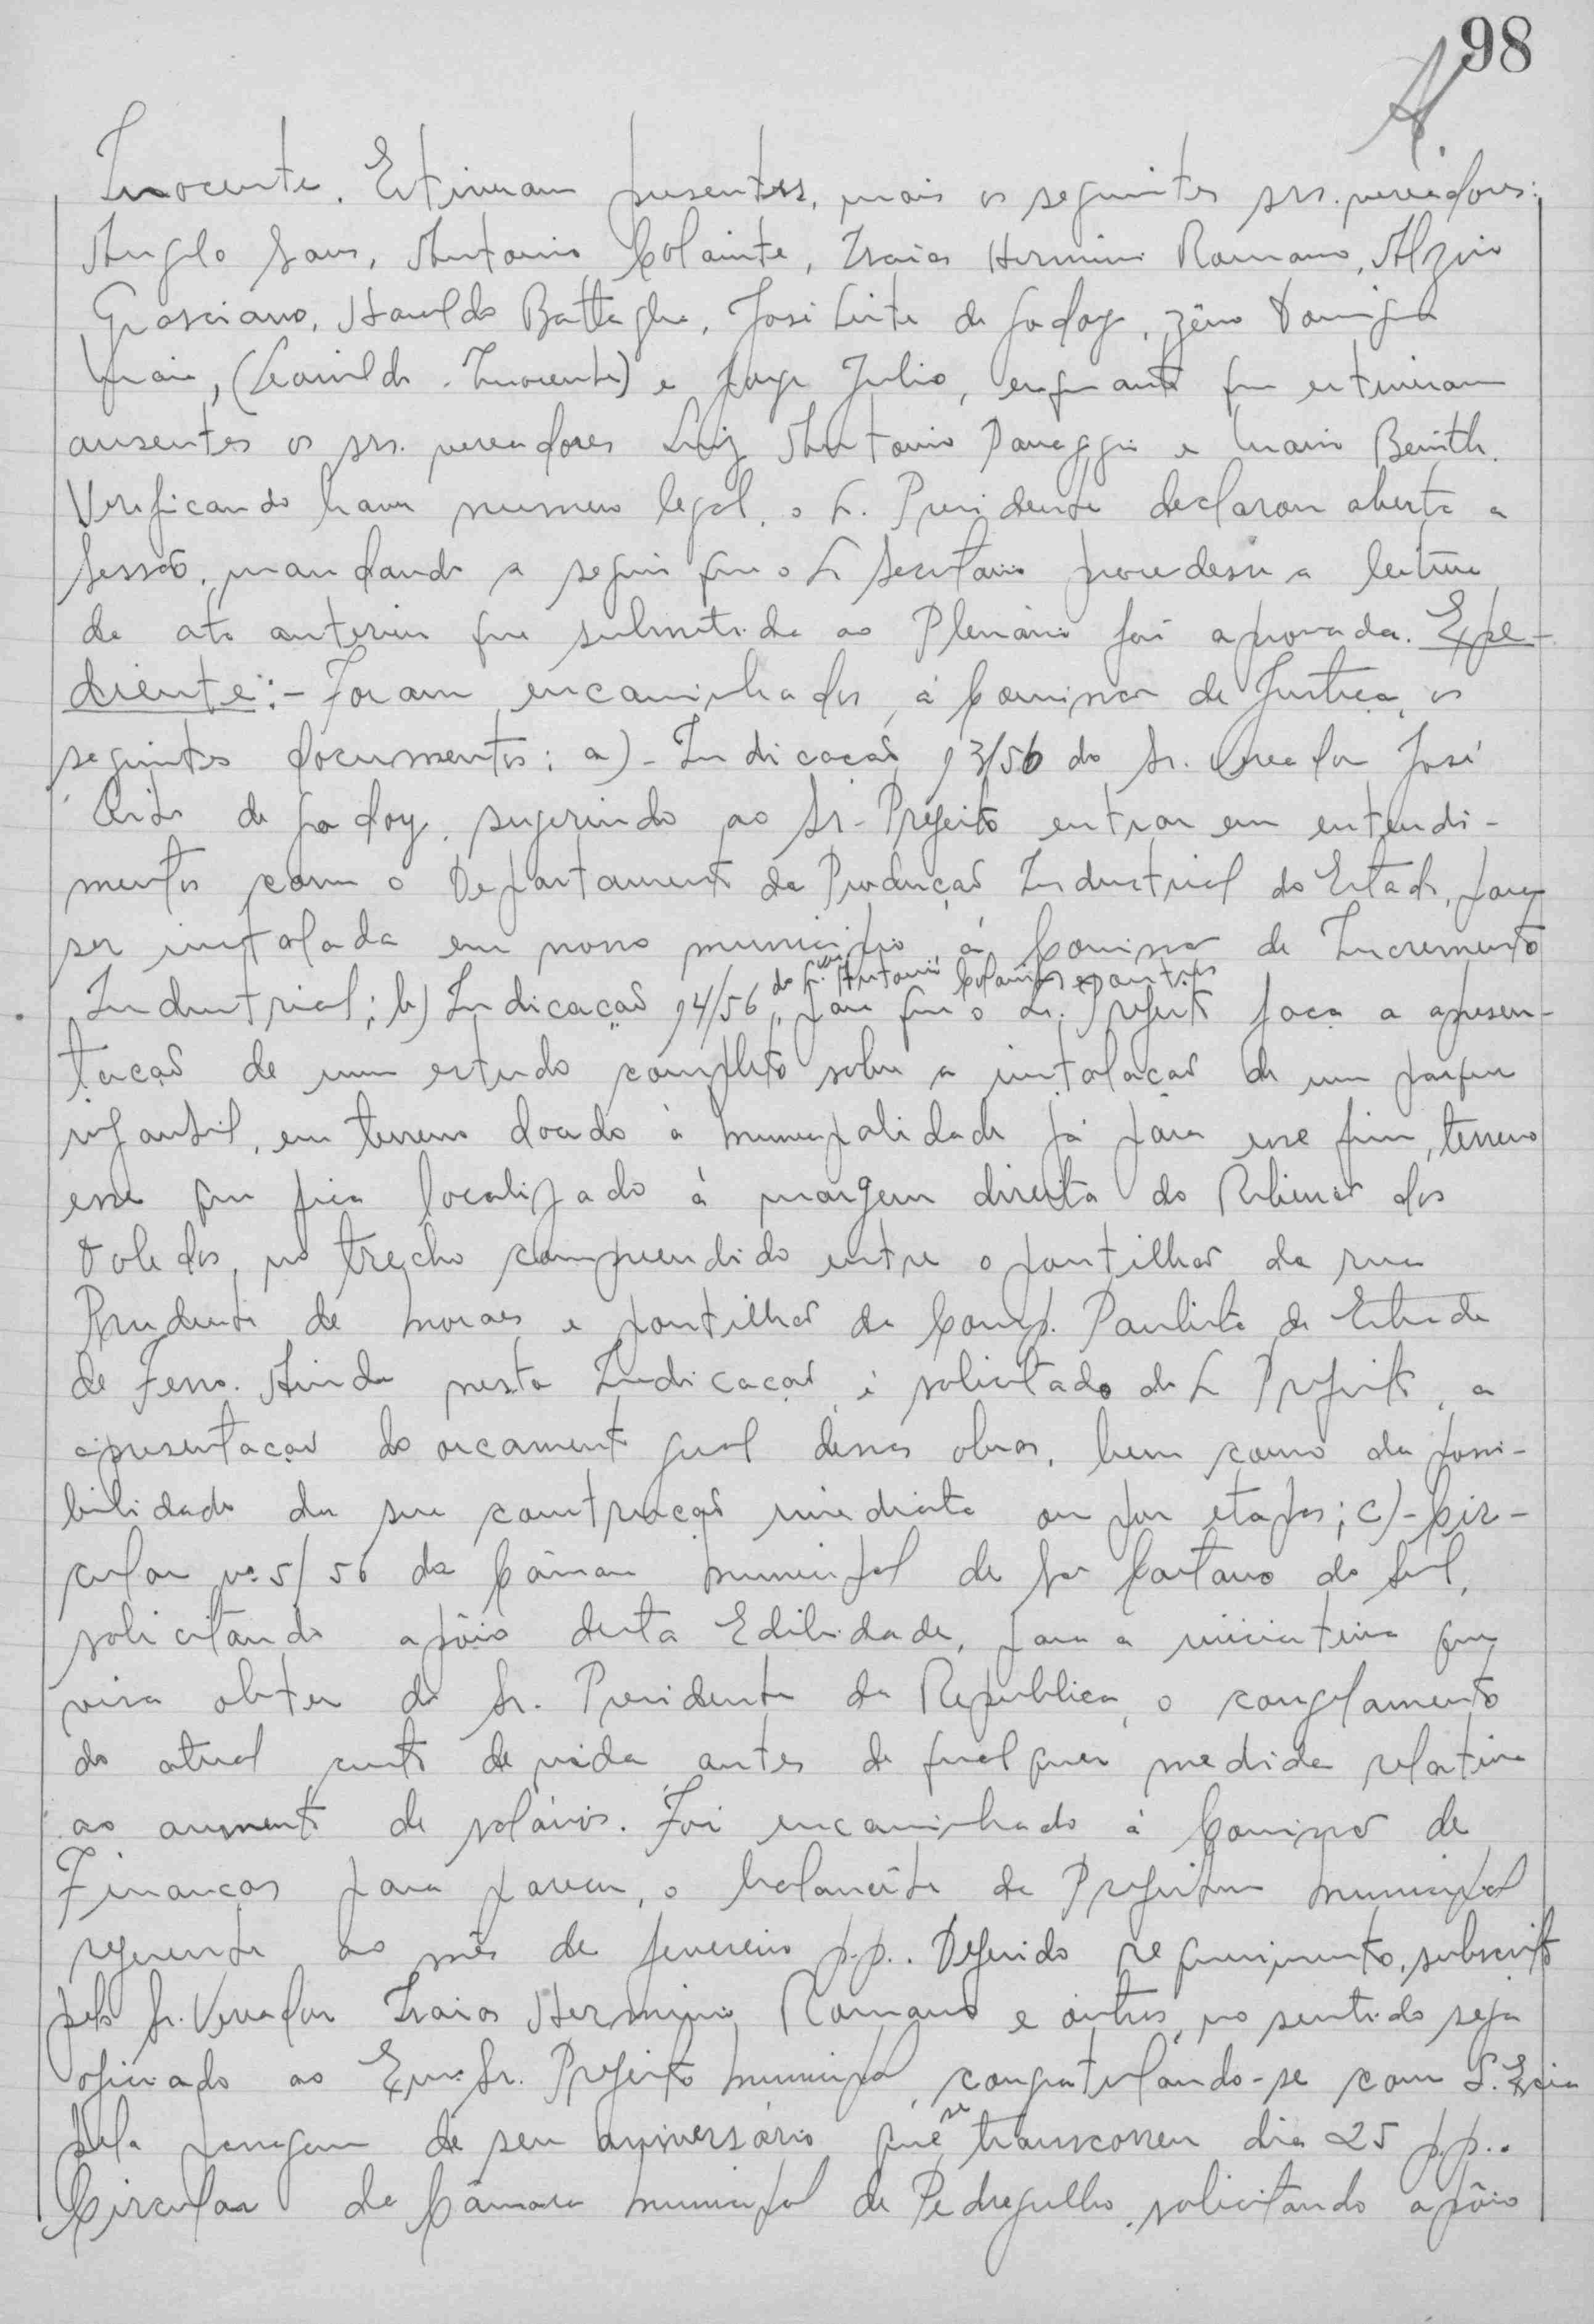 98
Inocente. Estiveram presentes, mais os seguintes srs. vereadores:
Angelo Sans, Antonio Colainte, Izaias Herminio Romano, Alziro
Grasciano, Haroldo Battaglia, José Leite de Godoy, Zêno Domingos
Maia, (Leonildo Inocente) e Jorge Julio, enquanto que estiveram
ausentes os srs. vereadores Luiz Antonio Panaggio e Mario
Verificando haver numero legal, o Sr. Presidente declarou aberta a
sessão, mandando a seguir que o Sr Secretario procedesse a leitura
da ata anterior que submetida ao Plenário foi aprovada. Expe-
diente:- Foram encaminhados, á Comissão de Justiça, os
seguintes documentos: a)- Indicação 93/56 do Sr. Vereador José
Leite de Godoy, sugerindo ao Sr. Prefeito entrar em entendi-
mentos com o Departamento da Produção Industrial do Estado, para
ser instalada em nosso municipio á Comissão de Incremento
Industrial; b) Indicação 94/56 do Sr. Ver. Antonio Colainte e outros, para que o Sr. Prefeito faça a apresen-
tação de um estudo completo sobre a instalação de um parque
infantil, em terreno doado á Municipalidade já para esse fim, terreno
esse que fica localizado á margem direita do Ribeirão dos
Toledos, no trecho compreendido entre o pontilhão da rua
Prudente de Moraes e pontilhão da Comp. Paulista de Estrada
de Ferro. Ainda nesta Indicação, é solicitado do Sr Prefeito, a
apresentação do orçamento geral dessas obras, bem como da possi-
bilidade da sua construção imediata ou por etapas; c)- Cir-
cular nº 5/56 da Câmara Municipal de São Caetano do Sul,
solicitando apôio desta Edilidade, para a iniciativa que
visa obter do Sr. Presidente da Republica, o congelamento
do atual custo de vida antes de qualquer medida relativa
ao aumento de salários. Foi encaminhado á Comissão de
Finanças para parecer, o balancête da Prefeitura Municipal
referente ao mês de fevereiro p.p.. Deferido requerimento, subscrito
pelo Sr. Vereador Izaias Herminio Romano e outros, no sentido seja
oficiado ao Exmo. Sr. Prefeito Municipal, congratulando-se com S. Excia
pela passagem de seu aniversário que se transcorreu dia 25 p.p..
Circular da Câmara Municipal de Pedregulho, solicitando apôio